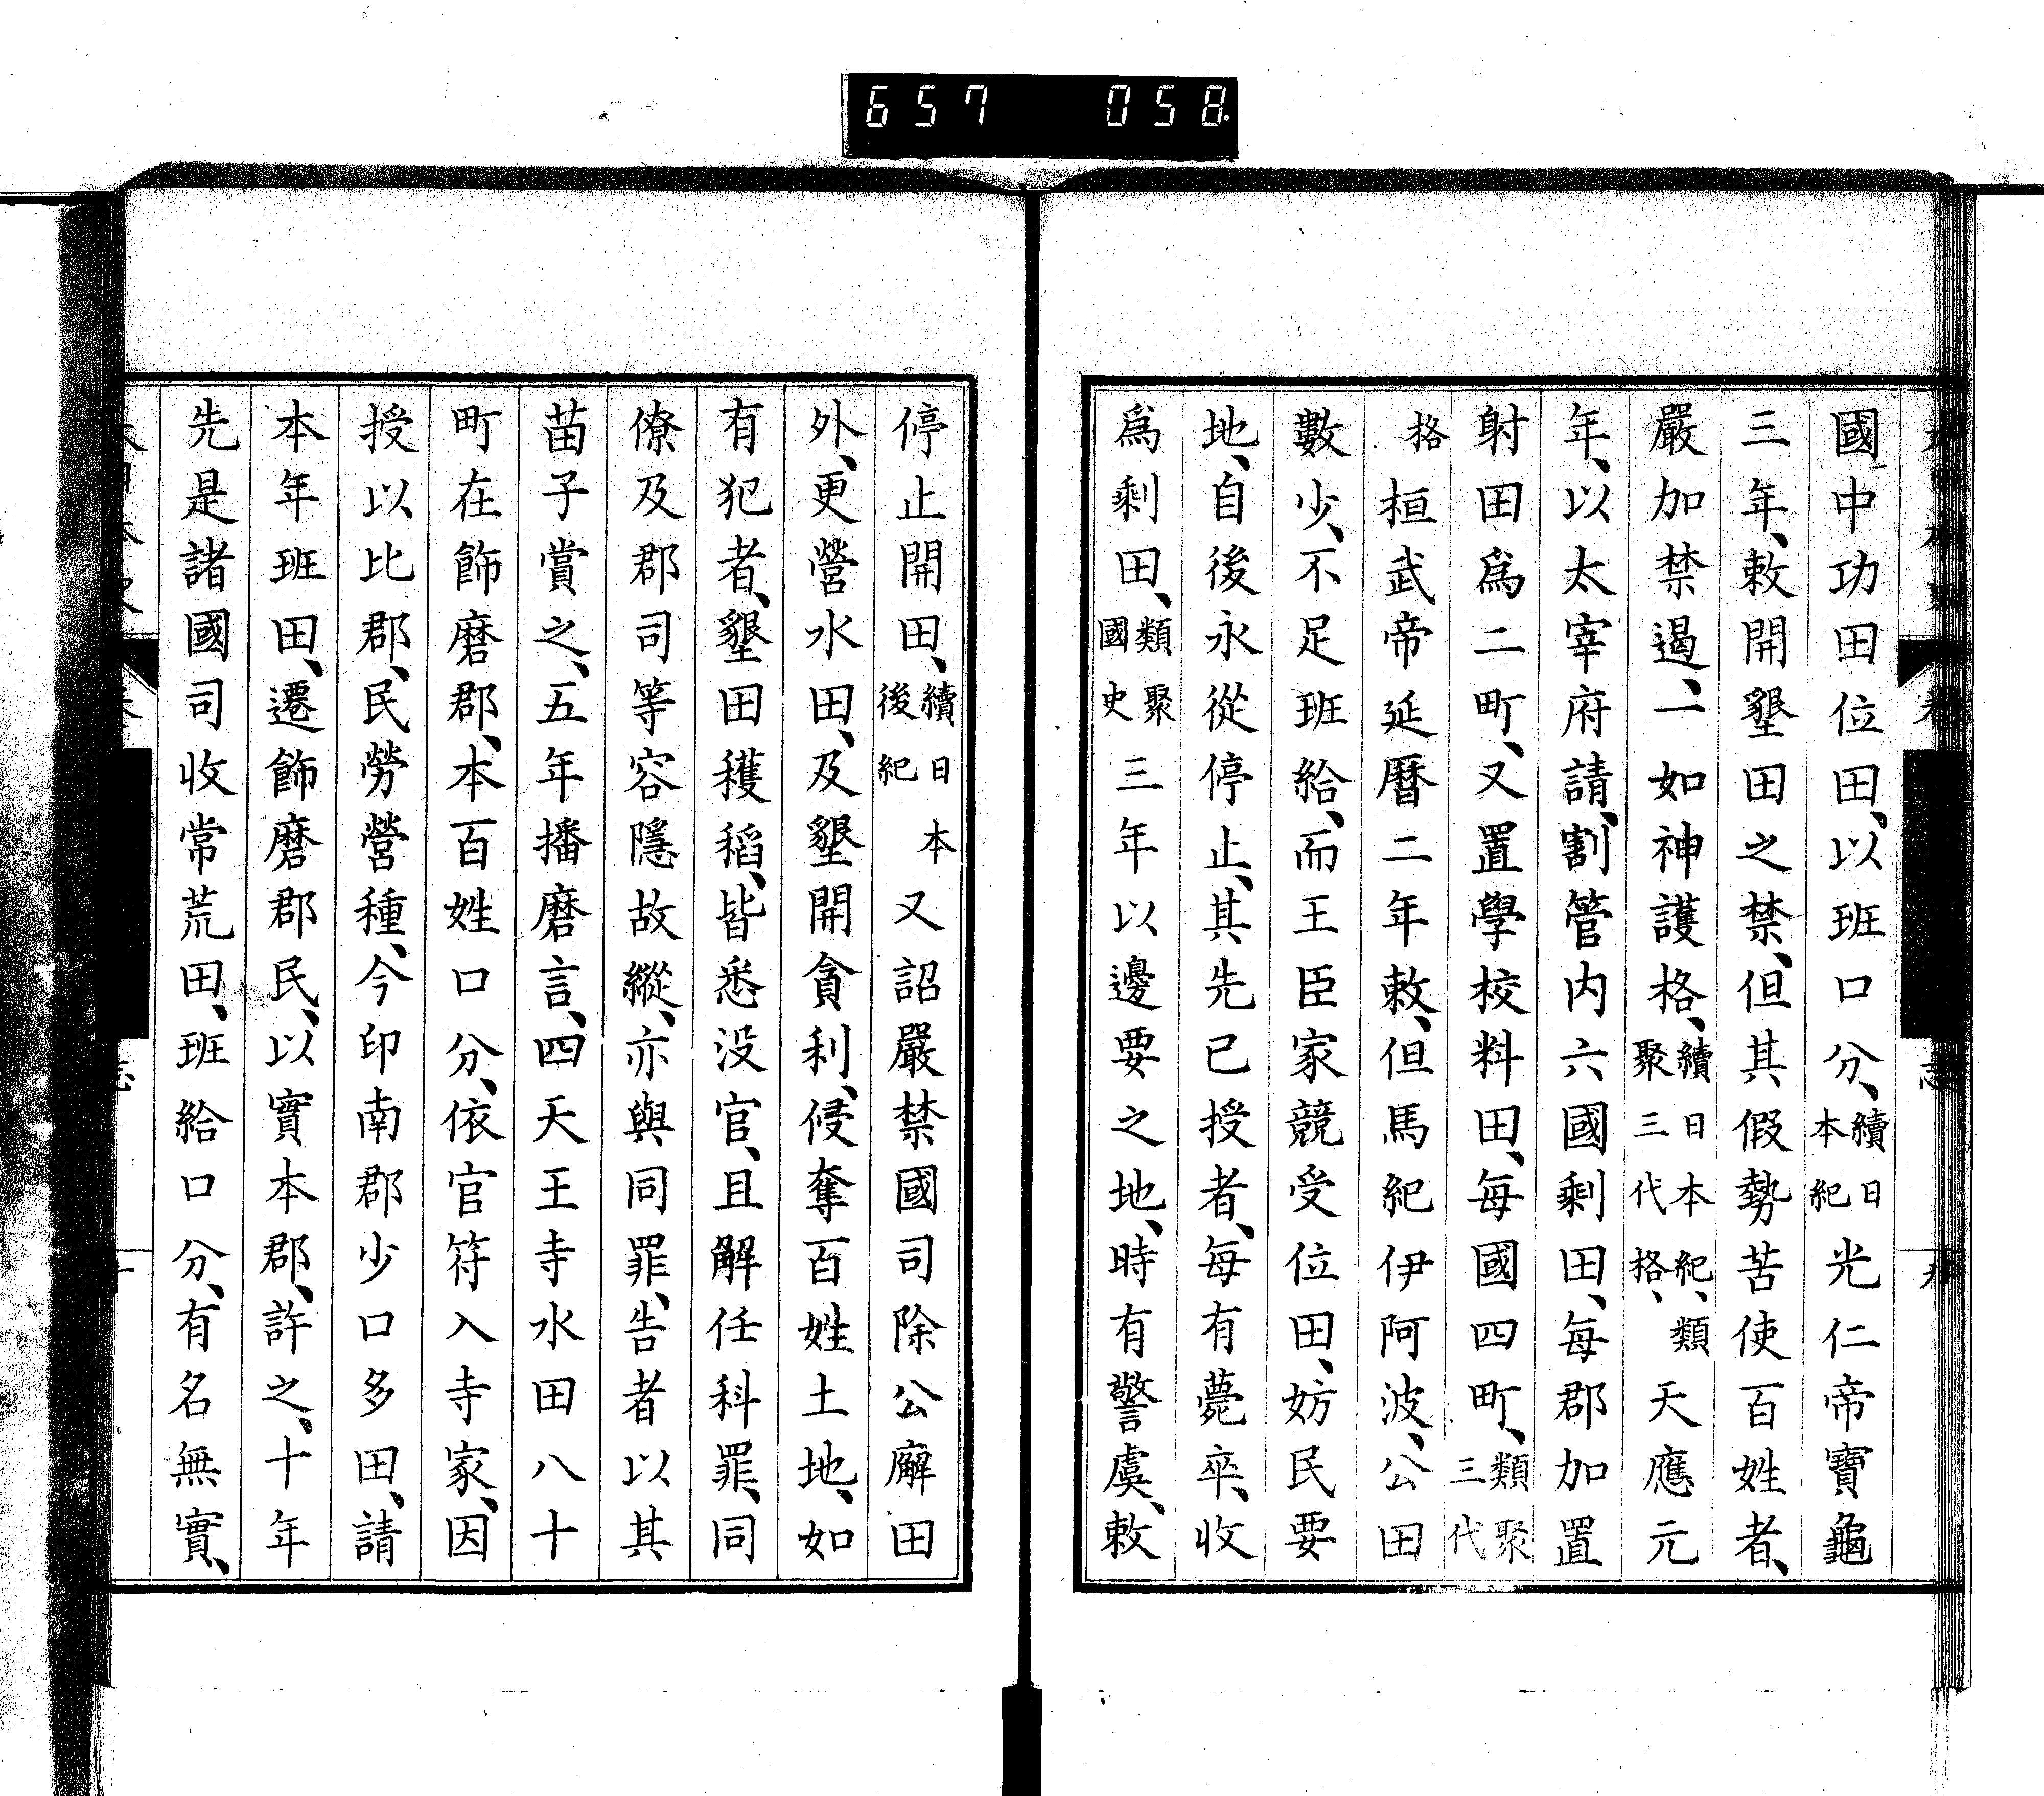 657 058
國中功田位田、以班口分、續日本紀光仁帝寶龜
三年、敕開墾田之禁、但其假勢苦使百姓者、
嚴加禁遏、一如神護格、續日本紀、類聚三代格、天應元
年、以太宰府請、割管内六國剩田、每郡加置
射田爲二町、又置學校料田、每國四町、類聚三代
格桓武帝延曆二年敕、但馬紀伊阿波、公田
數少、不足班給、而王臣家競受位田、妨民要
地、自後永從停止、其先已授者、每有薨卒、收
爲剩田、類聚國史三年以邊要之地、時有警虞、敕
停止開田、續日本後紀又詔嚴禁國司除公廨田
外、更營水田、及墾開貪利、侵奪百姓土地、如
有犯者、墾田穫稻、皆悉没官、且解任科罪、同
僚及郡司等容隱故縱、亦與同罪、告者以其
苗子賞之、五年播磨言、四天王寺水田八十
町在飾磨郡、本百姓口分、依官符入寺家、因
授以比郡、民勞營種、今印南郡少口多田、請
本年班田、遷飾磨郡民、以實本郡、許之、十年
先是諸國司收常荒田、班給口分、有名無實、